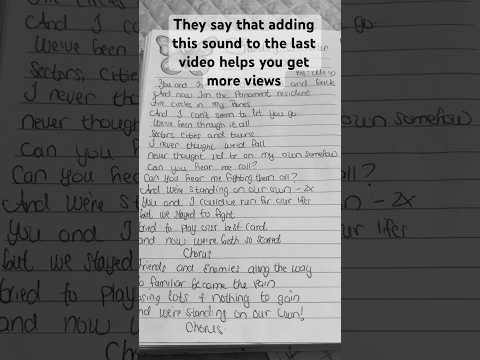 They say that adding
this sound to the last
video helps you get
more views
You and and back
And now I'm the permanent resident
circles in my
And I can't seem to let you go
We've been through it all
Sectors, cities and
I never thought we'd fall
never thought I'd be on my own somehow
Can you hear me call?
Can you hear me fighting them all?
And we're standing on our own - 2x
You and I could've run for our lifes
but we stayed to fight
tried to play our last card
and now we're both so scared
Chorus
friends and Enemies along the way
familiar became the pain
lots + nothing to gain
and we're standing on our own!
Chorus